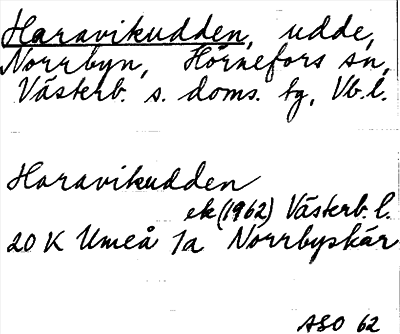 Haravikudden, udde,
Norrbyn, Hörnefors sn,
Västerb. s. doms. tg, Vb. l.
Haravikudden
ek (1962) Västerb. l.
20 K Umeå 1a Norrbyskär
ASO 62